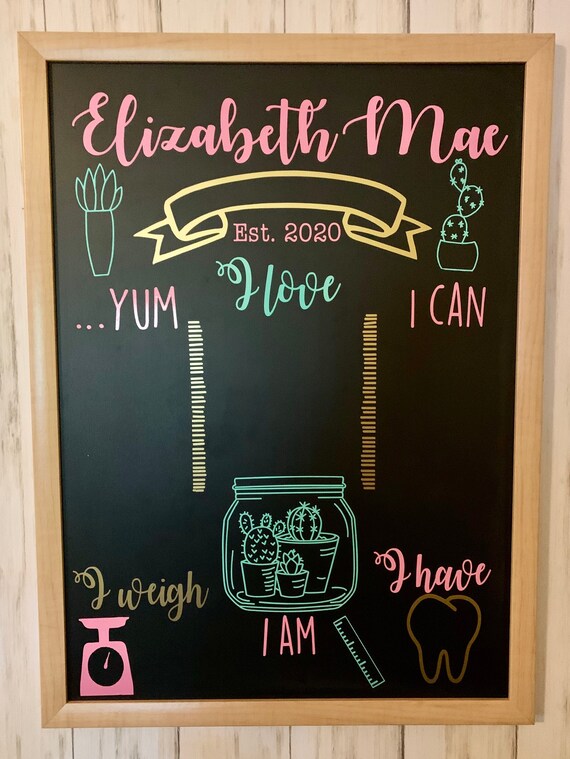 Elizabeth Mae
Est. 2020
I love
...YUM
I CAN
I weigh
I have
I AM